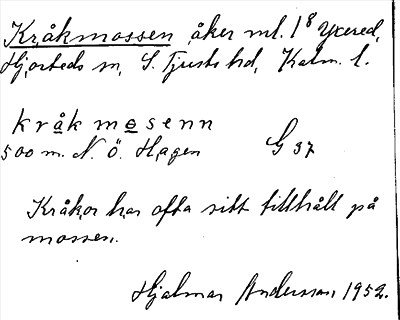 Kråkmossen, åker ml. 1⁸ Yxered,
Hjorteds sn, S. Tjusts hd, Kalm. l.
kråkmosenn
500 m. N. ö. Hagen G 37
Kråkor har ofta sitt tillhåll på
mossen.
Hjalmar Andersson 1952.